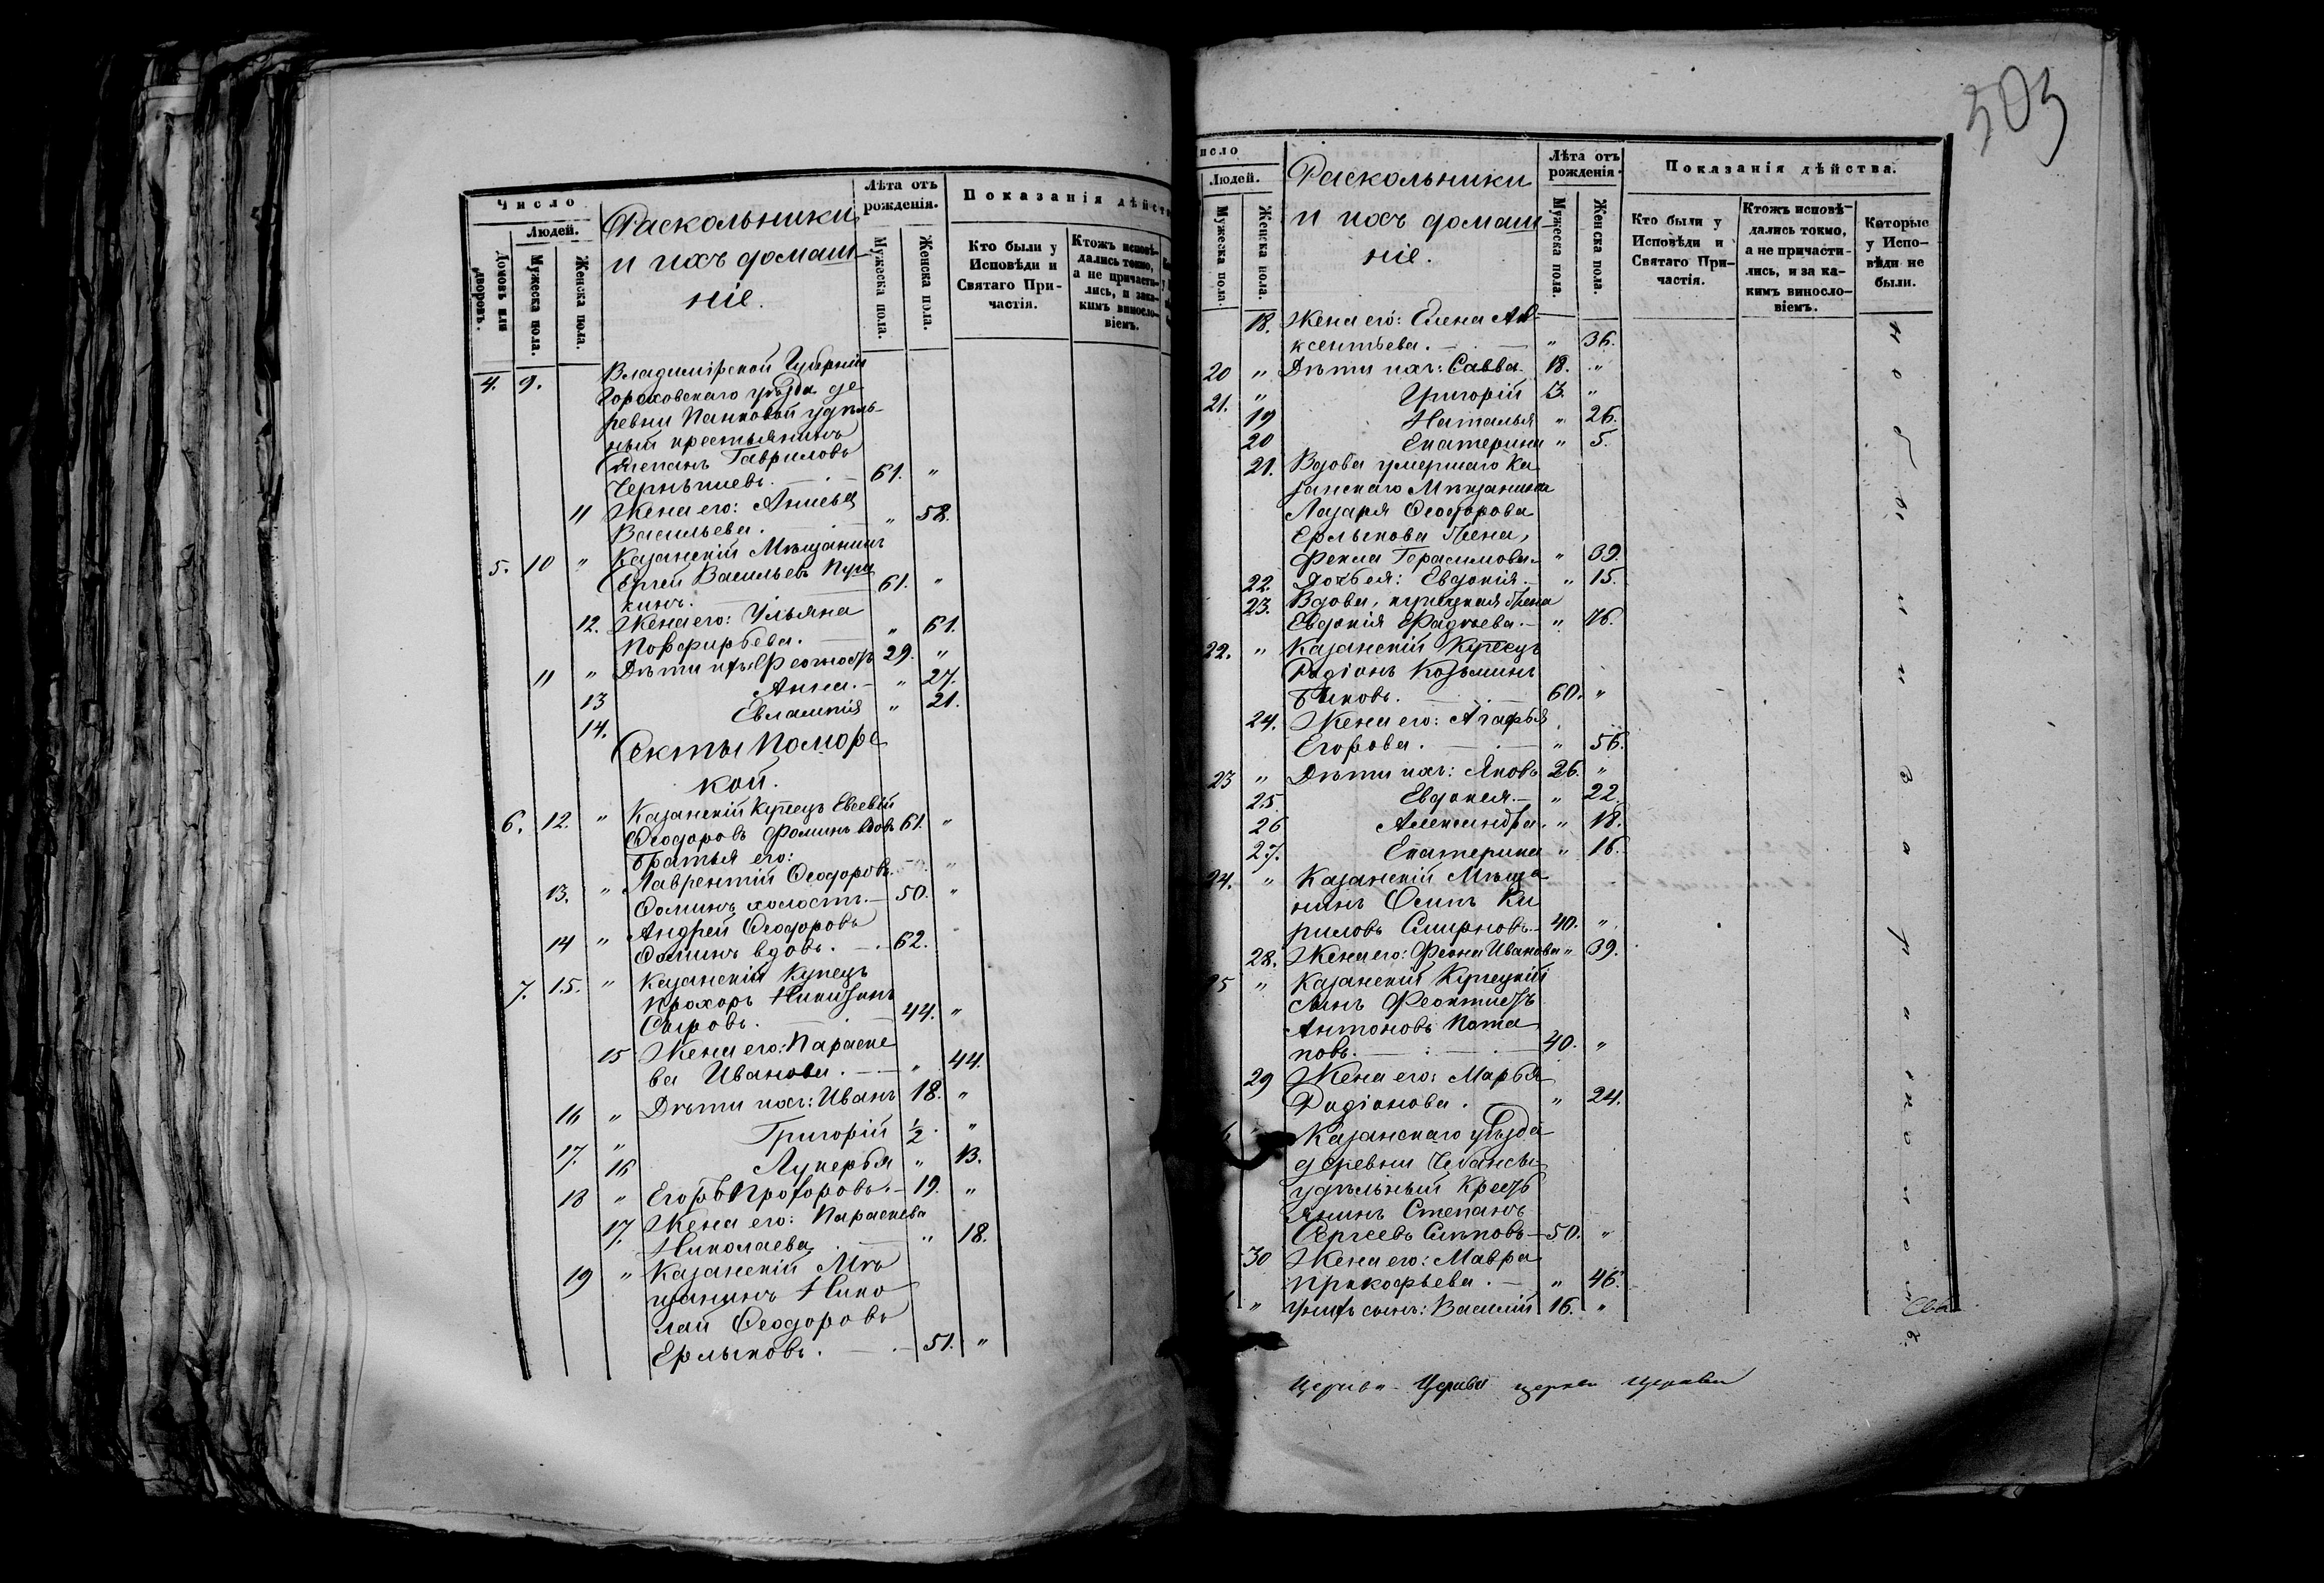 503
Число
Людей.
Домовъ или дворовъ.
Мужеска пола.
Женска пола.
Раскольники
и ихъ домаш-
ніе.
Лѣта отъ рожденія.
Мужеска пола.
Женска пола.
Показанія дѣйст
Кто были у Исповѣди и Святаго При-частія.
Ктожъ исповѣ-дались токмо, а не причасти-лись, и за ка-кимъ виносло-віемъ.
4. 9. Владимірской Губерніи
Гороховскаго уѣзда де
ревни Панковой удѣль-
ный крестьянинъ
Степанъ Гавриловъ
Чернышевъ. 61. "
11 Жена его: Анисья
Васильева. " 58.
5. 10 " Казанскій Мѣщанинъ
Сергей Васильевъ
кинъ. 61. "
12. Жена его: Ульяна
Порфирьева. " 61.
11 " Дѣти ихъ: 29. "
13 Анна. " 27.
14. Евлампія " 21.
Секты Поморс
кой.
6. 12. " Казанскій Купецъ Евсевій
Ѳеодоровъ Фоминъ вдовъ 61. "
Братья его:
13. " Лаврентій Ѳеодоровъ
Ѳоминъ холостъ. 50. "
14 " Андрей Ѳеодоровъ
Ѳоминъ вдовъ. 62.
7. 15. " Казанскій Купецъ
Прохоръ
Сыровъ. 44. "
15 Жена его: Параске
ва Иванова. " 44.
16 " Дѣти ихъ: Иванъ 18. "
17. " Григорій 1/2 "
16 Лукерья " 13.
18 " Егоръ Прохоровъ. 19. "
17. Жена его: Параскева
Николаева " 18.
19 " Казанскій Мѣ
щанинъ Нико
лай Ѳеодоровъ
Ерлыковъ. 51. "
исло
Людей.
Мужеска пола.
Женска пола.
Раскольники
и ихъ домаш-
ніе.
Лѣта отъ рожденія.
Мужеска пола.
Женска пола.
Показанія дѣйства.
Кто были у Исповѣди и Святаго При-частія.
Ктожъ исповѣ-дались токмо, а не причасти-лись, и за ка-кимъ виносло-віемъ.
Которые у Испо-вѣди не были.
18. Жена его: Елена Ав-
ксентьева. " 36.
20 " Дѣти ихъ: Савва 18. "
21. " Григорій 3. "
19 Наталья " 26.
20 Екатерина " 5.
21. Вдова умершаго Ка
занскаго Мѣщанина
Лазаря Ѳеодорова
Ерлыкова жена,
Фекла Герасимова " 39.
22. Дочь ея: Евдокія. " 15.
23. Вдова, купецкая жена
Евдокія Фадѣева. " 76.
22. " Казанскій Купецъ
Родіонъ Козьминъ
Быковъ. 60. "
24. Жена его: Агафья
Егорова. " 56.
23 " Дѣти ихъ: Яковъ 26. "
25 Евдокея. " 22.
26 Александра. " 18.
27. Екатерина " 16.
24. " Казанскій Мѣща
нинъ Осипъ Ки
риловъ Смирновъ. 40. "
28. Жена его: Феона Иванова " 39.
25 " Казанскій Купецкій
сынъ Феоктистъ
Антоновъ Пота
повъ. 40. "
29 Жена его: Марья
Родіонова. " 24.
Казанскаго уѣзда
деревни
удѣльный Крест
янинъ Степанъ
Сергеевъ 50. "
30 Жена его: Мавра
Прокофьева. " 46.
" У нихъ сынъ: Василій 16. "